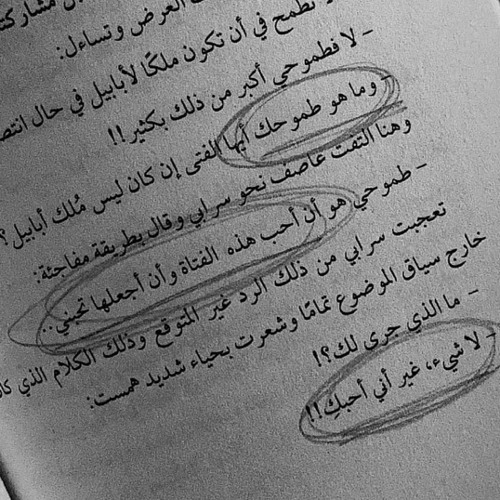 مشاركته
العرض وتساءل:
تطمح في أن تكون ملكًا لأبابيل في حال
- لا فطموحي أكبر من ذلك بكثير!!
- وما هو طموحك أيها الفتى إن كان ليس مُلك أبابيل؟
وهنا التفت عاصف نحو سرابي وقال بطريقة مفاجئة:
- طموحي هو أن أحب هذه الفتاة وأن أجعلها تحبني..
تعجبت سرابي من ذلك الرد غير المتوقع وذلك الكلام الذي
خارج سياق الموضوع تمامًا وشعرت بحياء شديد همست:
- ما الذي جرى لك؟!
- لا شيء، غير أني أحبكِ!!